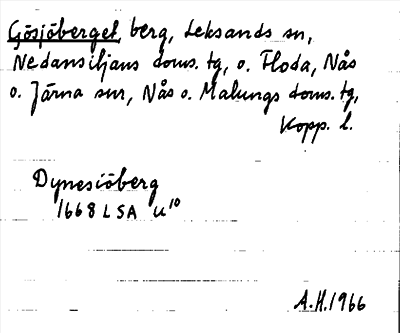 Gösjöberget, berg, Leksands sn,
Nedansiljans doms. tg, o. Floda, Nås
o. Järna snr, Nås o. Malungs doms. tg,
Kopp. l.
Dynesiöberg
1668 LSA U¹⁰
A.H. 1966